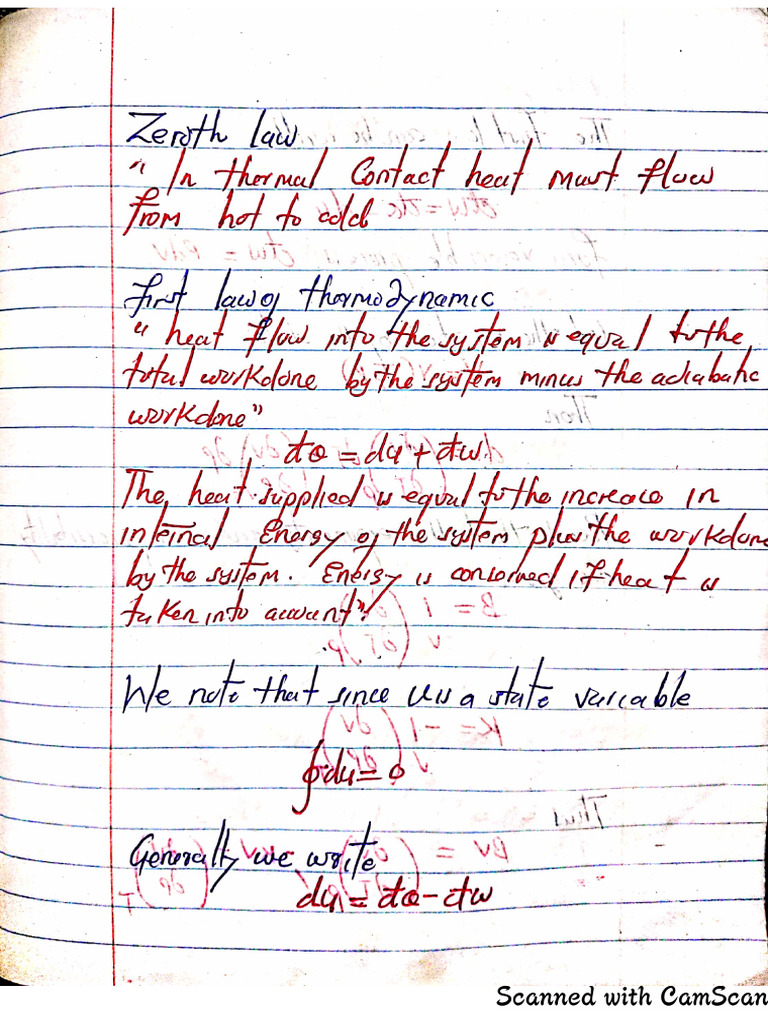 Zeroth law
"In thermal Contact heat must flow
from hot to cold
first law of thermodynamic
"heat flow into the system is equal to the
total workdone by the system minus the adiabatic
workdone"
đQ = du + đw
The heat supplied is equal to the increase in
internal Energy of the system plus the workdone
by the system. Energy is conserved if heat is
taken into account"
We note that since U is a state variable
∮du = 0
Generally we write
du = đQ - đw
Scanned with CamScan